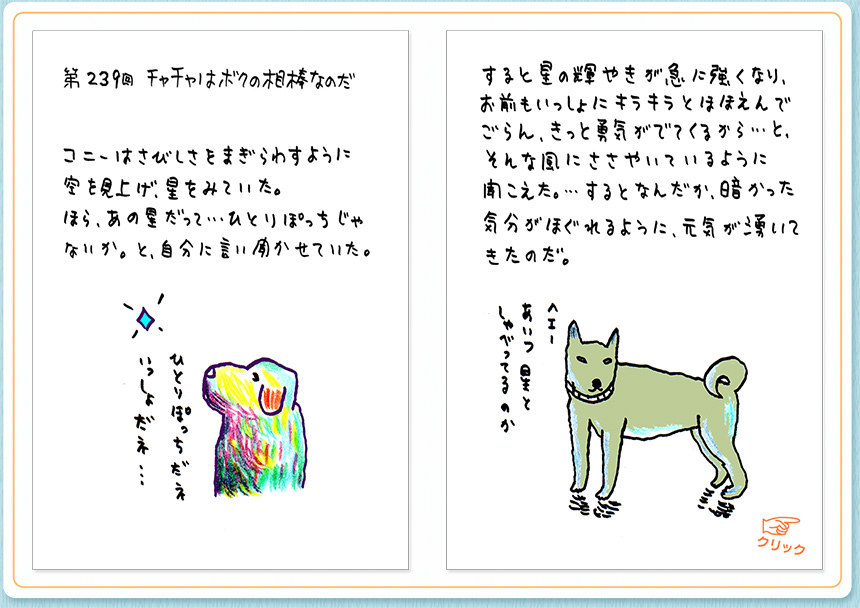 第239回 チャチャはボクの相棒なのだ
コニーはさびしさをまぎらわすように
空を見上げ、星をみていた。
ほら、あの星だって…ひとりぽっちじゃ
ないか。と、自分に言い聞かせていた。
ひとりぽっちだネ
いっしょだネ…
すると星の輝やきが急に強くなり、
お前もいっしょにキラキラとほほえんで
ごらん、きっと勇気がでてくるから…と、
そんな風にささやいているように
聞こえた。…するとなんだか、暗かった
気分がほぐれるように、元気が湧いて
きたのだ。
ヘエー
あいつ星と
しゃべってるのか
クリック